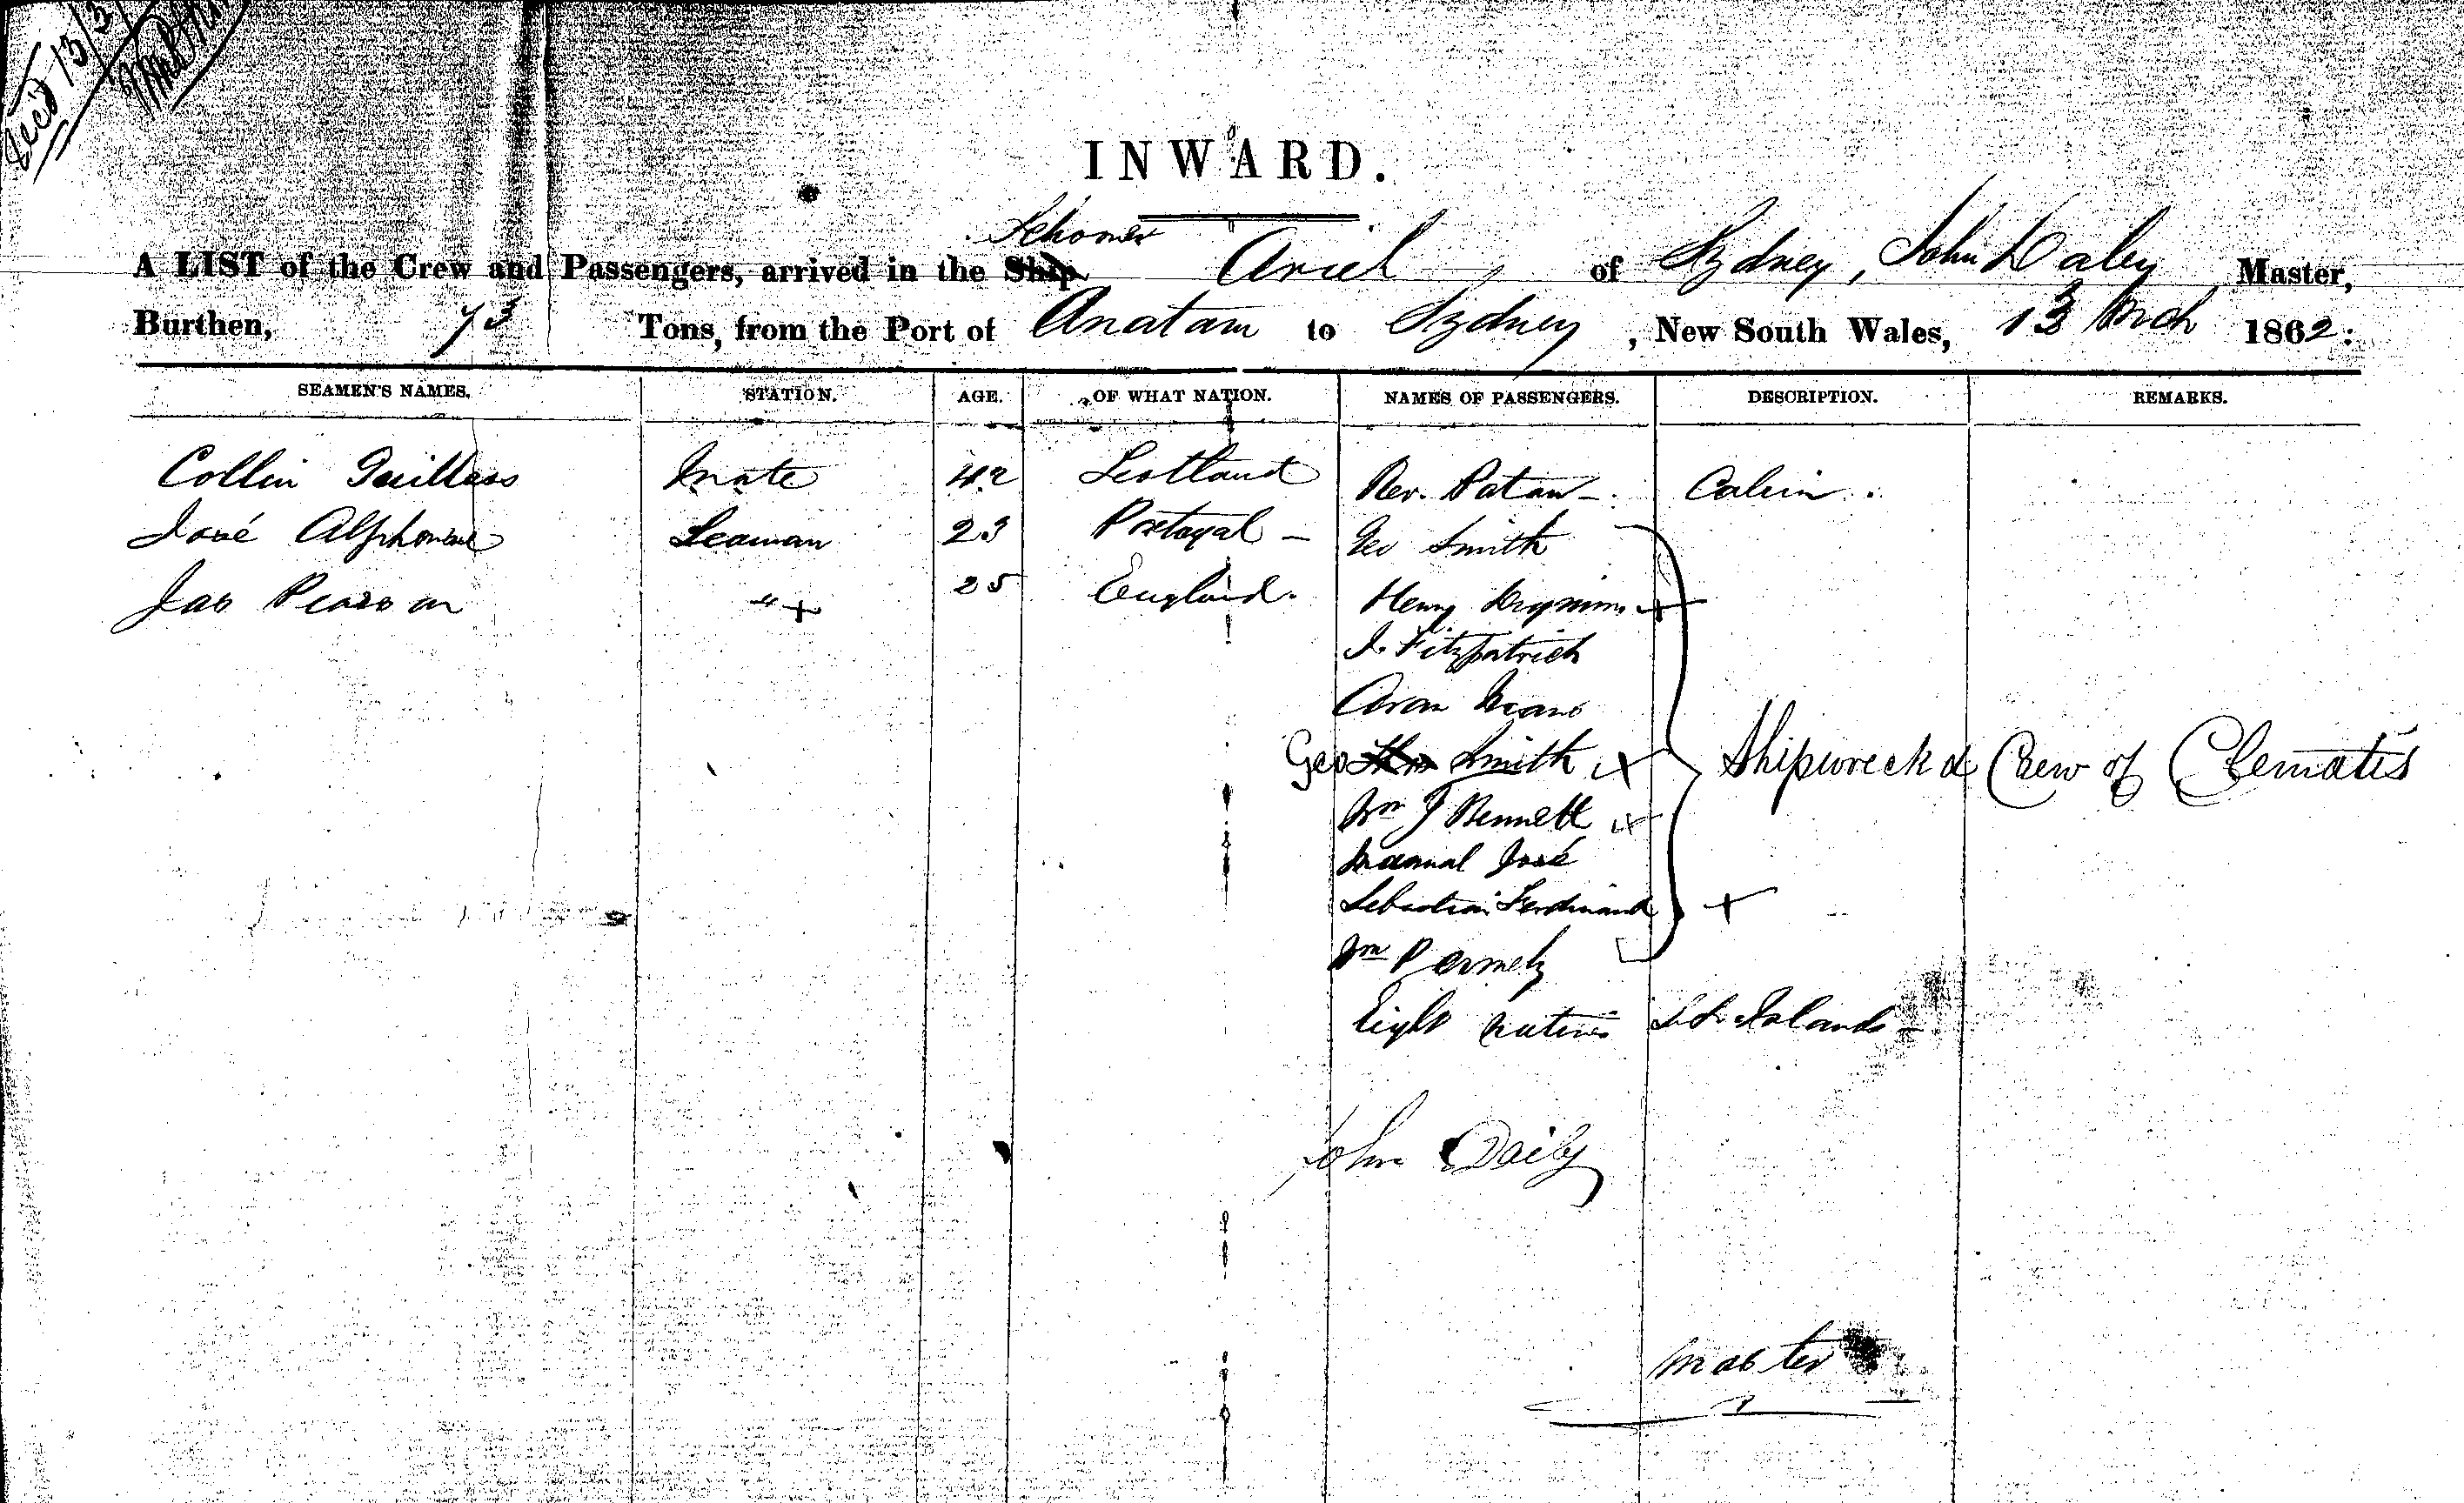 Recd 13/3
INWARD.
Schooner
A LIST of the Crew and Passengers, arrived in the Ship Ariel, of Sydney, John Daley Master,
Burthen, 73 Tons, from the Port of Anatam to Sydney, New South Wales, 13 Mrch 1862:
SEAMEN'S NAMES. STATION. AGE. OF WHAT NATION. NAMES OF PASSENGERS. DESCRIPTION. REMARKS.
Collin Mate 42 Scotland Rev. Paton - Cabin.
José Alphonse Seaman 23 Portugal - Geo Smith
Jas Pearson " + 25 England. Henry +
J. Fitzpatrick
Aron
Geo Thos Smith + Shipwreckd Crew of Clematis
Wm J Bennett +
Manual José
Sebastian Ferdinand +
Wm
Eight natives S.S. Islands -
John Daily
master